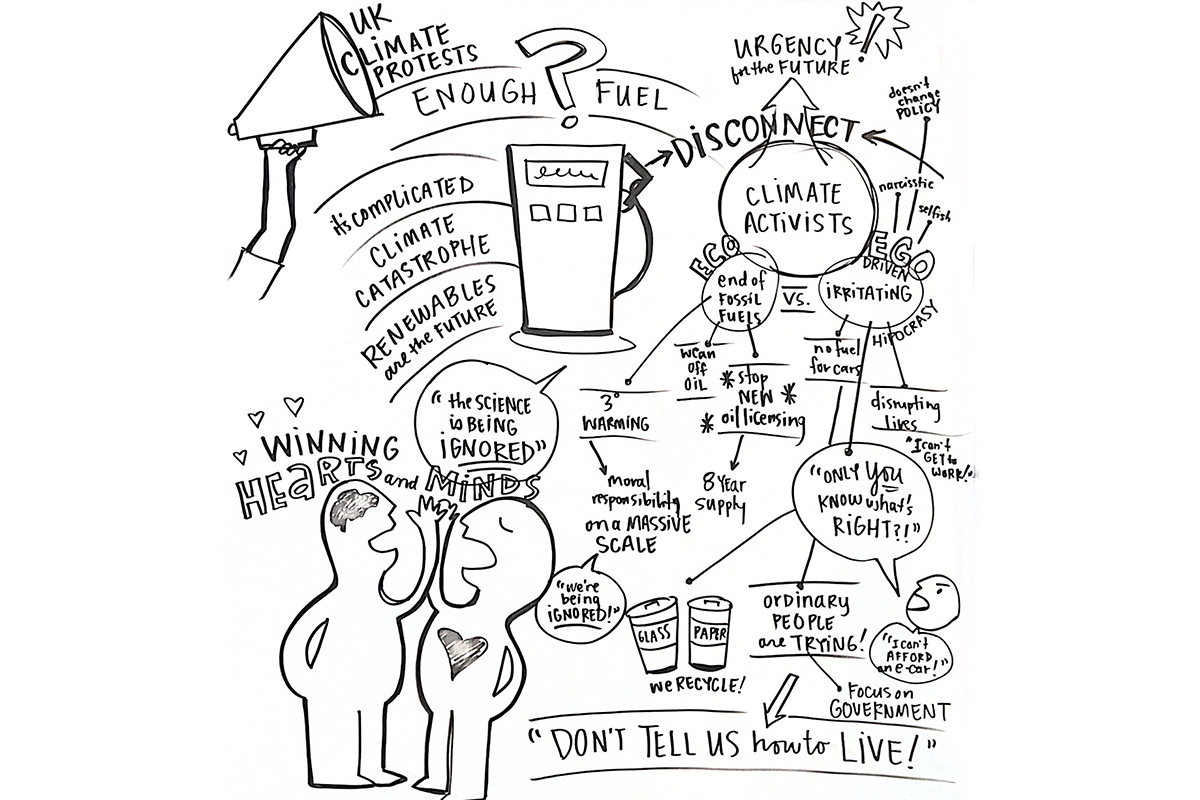 UK
CLIMATE
PROTESTS
ENOUGH ? FUEL
it's COMPLICATED
CLIMATE
CATASTROPHE
RENEWABLES
are the FUTURE
URGENCY
for the FUTURE !
DISCONNECT
doesn't
change
POLICY
narcisstic
selfish
CLIMATE
ACTIVISTS
ECO
end of
FOSSIL
FUELS
VS.
EGO
DRIVEN
iRRITATING
HIPOCRASY
wean
OFF
OIL
* stop
NEW *
* oil licensing
8 YEAR
supply
3°
WARMING
moral
responsibility
on a MASSIVE
SCALE
no fuel
for cars
disrupting
lives
"I can't
GET to
WORK!"
"the SCIENCE
is BEING
IGNORED"
WINNING
HEARTS and MINDS
"we're
being
IGNORED!"
"ONLY YOU
KNOW what's
RIGHT?!"
GLASS
PAPER
we RECYCLE!
ORDINARY
PEOPLE
are TRYING!
"I can't
AFFORD
an e-car!"
FOCUS on
GOVERNMENT
"DON'T TELL US how to LIVE!"